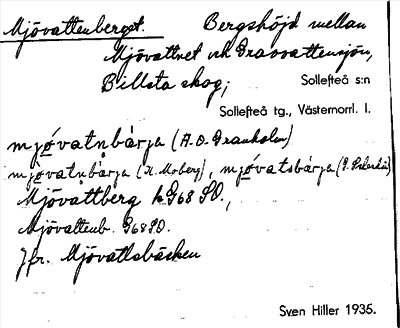 Mjövattenberget. Bergshöjd mellan
Mjövattnet och Grasvattensjön,
Billsta skog; Sollefteå s:n
Sollefteå tg., Västernorrl. l.
mjövatn̥bárja (A. O. Granholm)
mjövatn̥bárja (K. Moberg), mjövatsbárja
Mjövattberg k G68 SO.,
Mjövattenb. G68 SO.
Jfr. Mjövattsbäcken
Sven Hiller 1935.